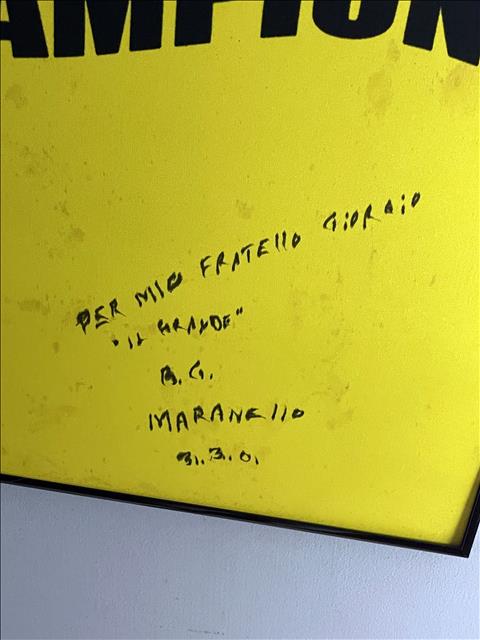 AMPION
PER MIO FRATELLO GIORGIO
"IL GRANDE"
B.G.
MARANELLO
31.3.01